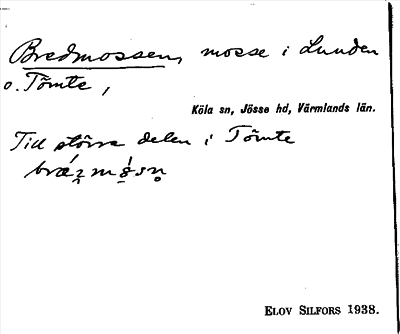 Bredmossen, mosse i Lunden
o. Tömte,
Köla sn, Jösse hd, Värmlands län.
Till större delen i Tömte
ELOV SILFORS 1938.